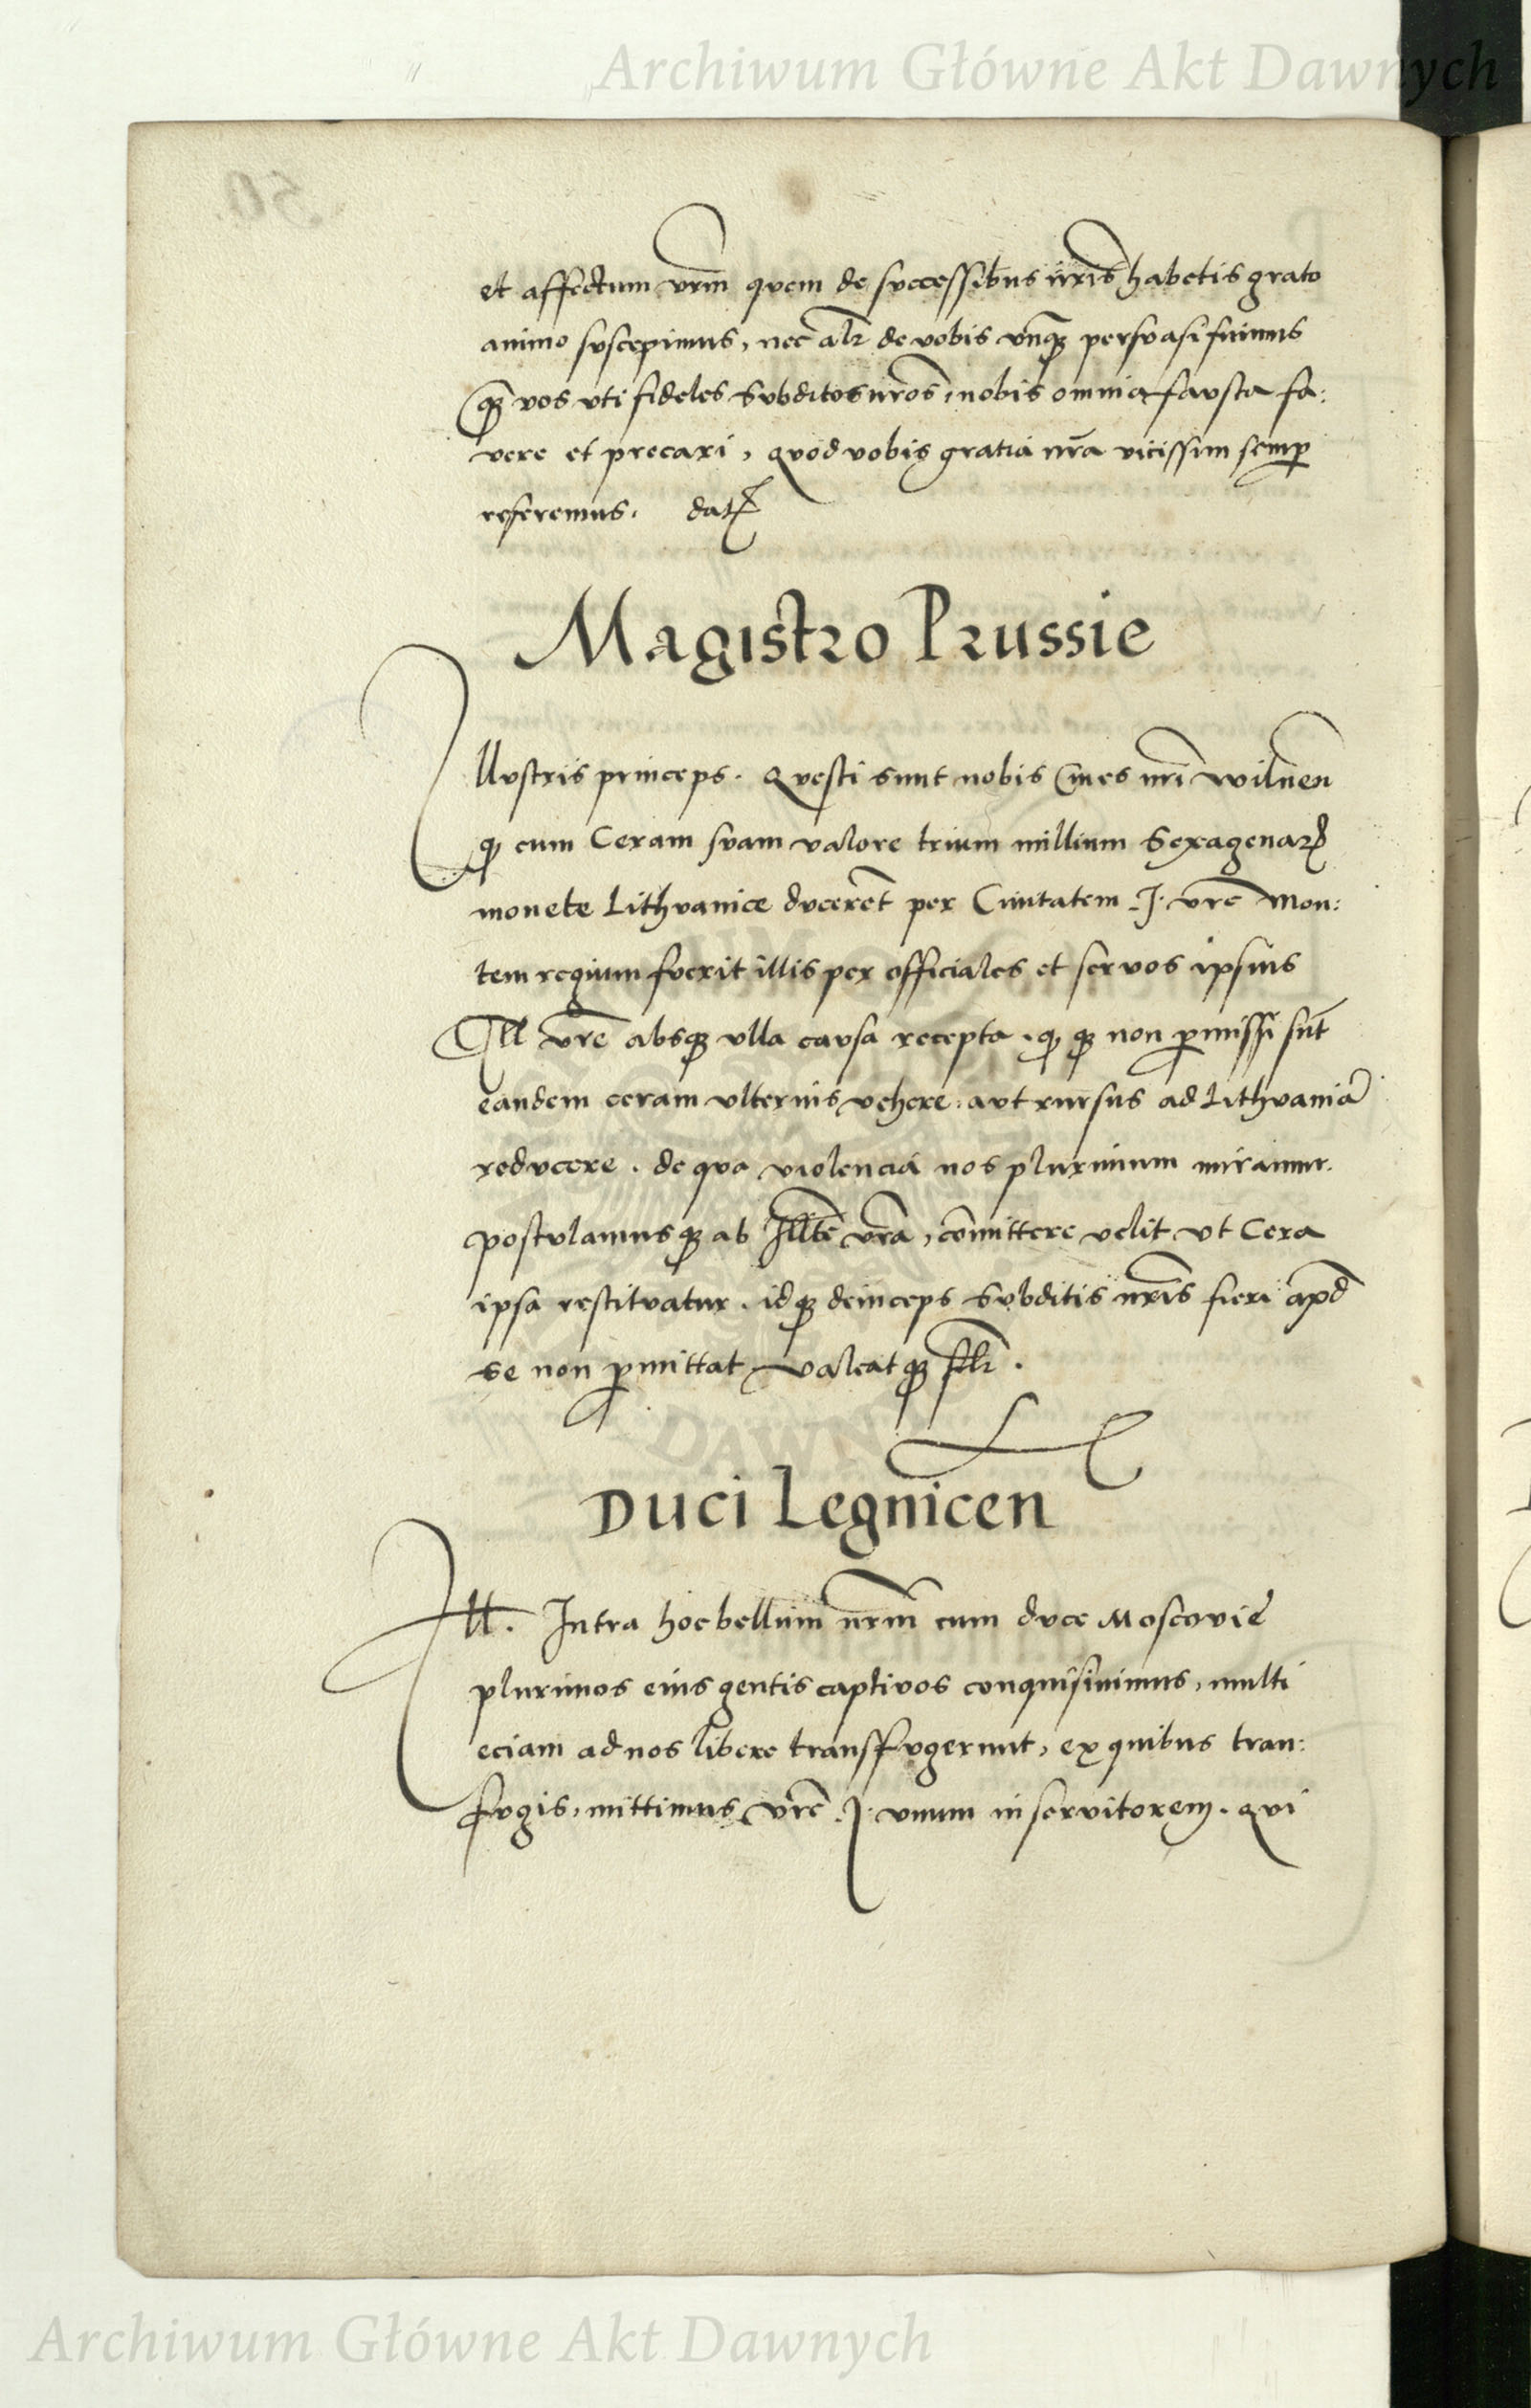 Archiwum Główne Akt Dawnych
et affectum vrm̃ quem de successibus nr̃is habetis grato
animo suscepimus, nec alr̃ de vobis vnq̃ persuasi fuimus
q̃ vos vti fideles subditos nr̃os, nobis omnia fausta fa:
vere et precari, quod vobis gratia nr̃a vicissim semp
referemus. dat
Magistro Prussie
Illustris princeps. Questi sunt nobis Ciues nr̃i wilnen̄
q cum Ceram suam valore trium millium sexagenar
monete Lithuanice ducerẽt per Ciuitatem .J. vrẽ Mon:
tem regium fuerit illis per officiales et seruos ipsius
Ill vrẽ absq vlla causa recepta . q q non pmissi sũt
eandem ceram vlterius vehere . aut rursus ad Lithuaniã
reducere . de qua violencia nos plurimum miramur.
postulamusq ab Illtẽ vrã, cõmittere velit vt Cera
ipsa restituatur . idq deinceps subditis nr̃is fieri apd
se non pmittat valeatq flr̃ .
Duci Legnicen
Ill. Intra hoc bellum nrm̃ cum duce Moscovie
plurimos eius gentis captivos conquisiuimus, multi
eciam ad nos libere transfugerunt, ex quibus tran:
fugis, mittimus vrẽ .J. vnum in seruitorem . qui
Archiwum Główne Akt Dawnych